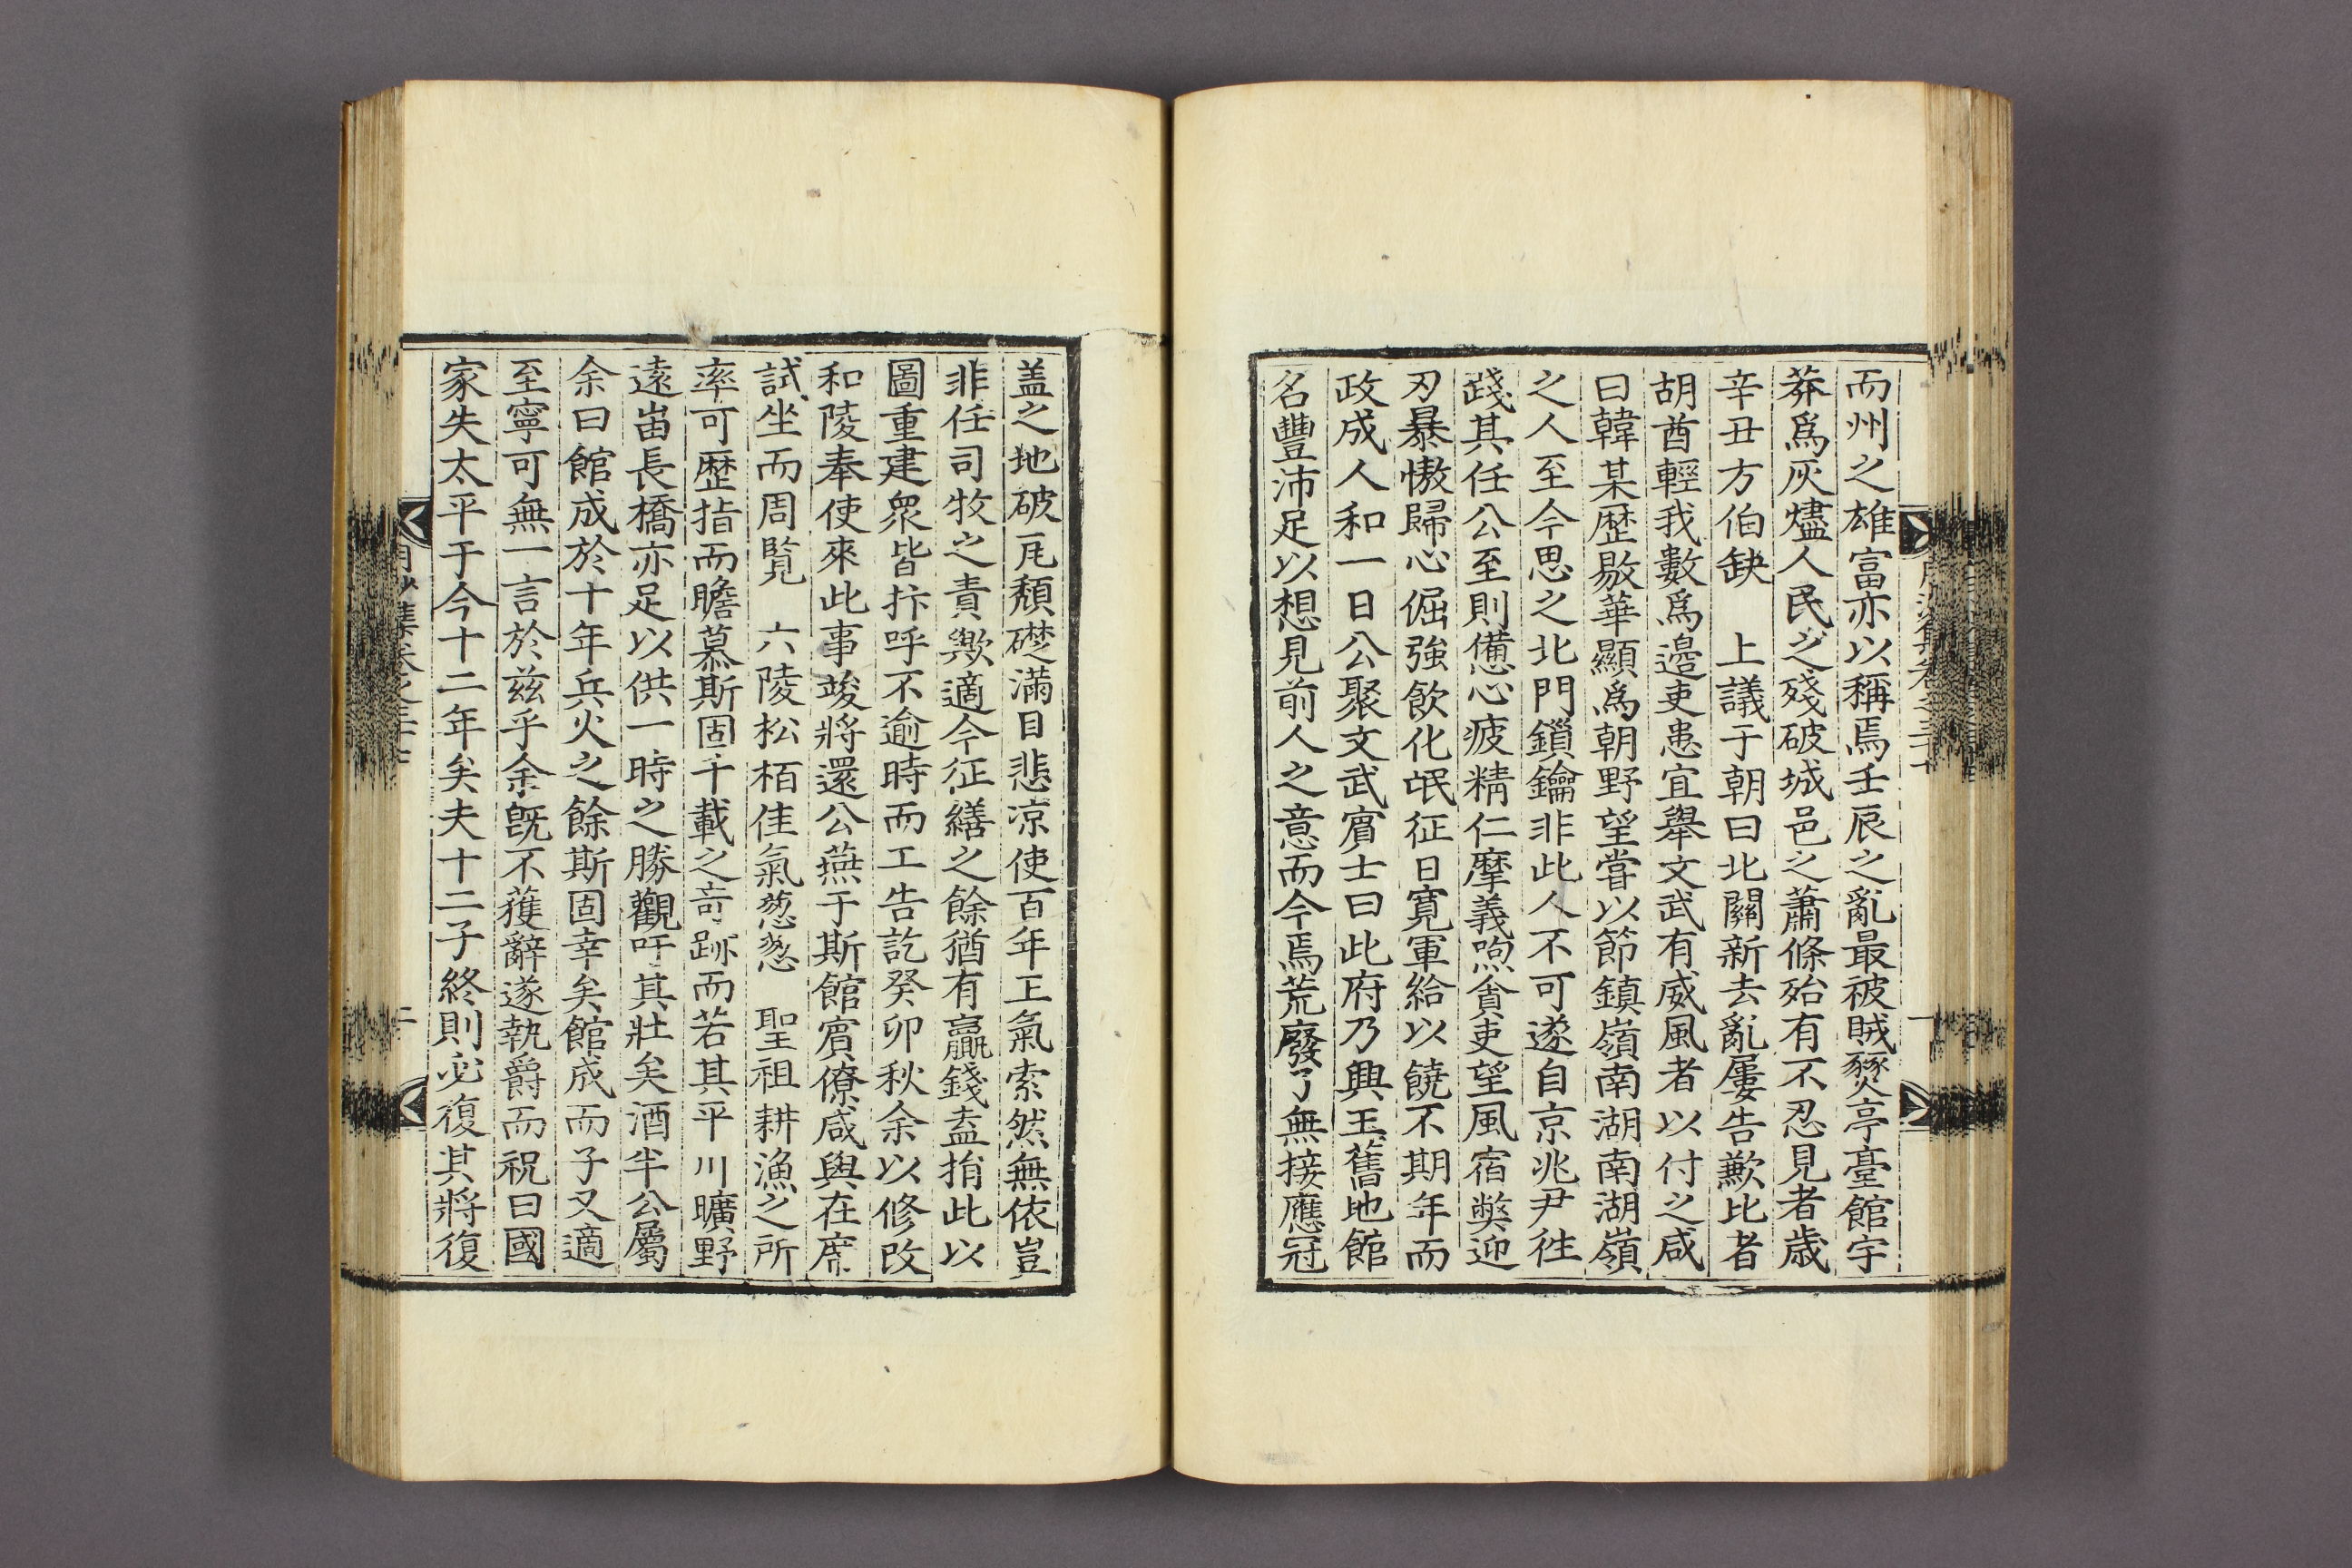 而州之雄富亦以稱焉壬辰之亂最被賊燹亭臺館宇
莽爲灰燼人民之殘破城邑之蕭條殆有不忍見者歲
辛丑方伯缺　上議于朝曰北關新去亂屢告歉比者
胡酋輕我數爲邊吏患宜舉文武有威風者以付之咸
曰韓某歷敭華顯爲朝野望嘗以節鎮嶺南湖南湖嶺
之人至今思之北門鎖鑰非此人不可遂自京兆尹往
踐其任公至則憊心疲精仁摩義煦貪吏望風宿弊迎
刃暴慠歸心倔強飮化氓征日寬軍給以饒不期年而
政成人和一日公聚文武賓士曰此府乃興王舊地館
名豐沛足以想見前人之意而今焉荒廢了無接應冠
盖之地破瓦頹礎滿目悲凉使百年王氣索然無依豈
非任司牧之責歟適今征繕之餘猶有贏錢盍捐此以
圖重建衆皆抃呼不逾時而工告訖癸卯秋余以修改
和陵奉使來此事竣將還公燕于斯館賓僚咸與在席
試坐而周覽　六陵松栢佳氣葱葱　聖祖耕漁之所
率可歷指而瞻慕斯固千載之竒跡而若其平川曠野
遠峀長橋亦足以供一時之勝觀吁其壯矣酒半公屬
余曰館成於十年兵火之餘斯固幸矣館成而子又適
至寧可無一言於玆乎余旣不獲辭遂執爵而祝曰國
家失太平于今十二年矣夫十二子終則必復其將復